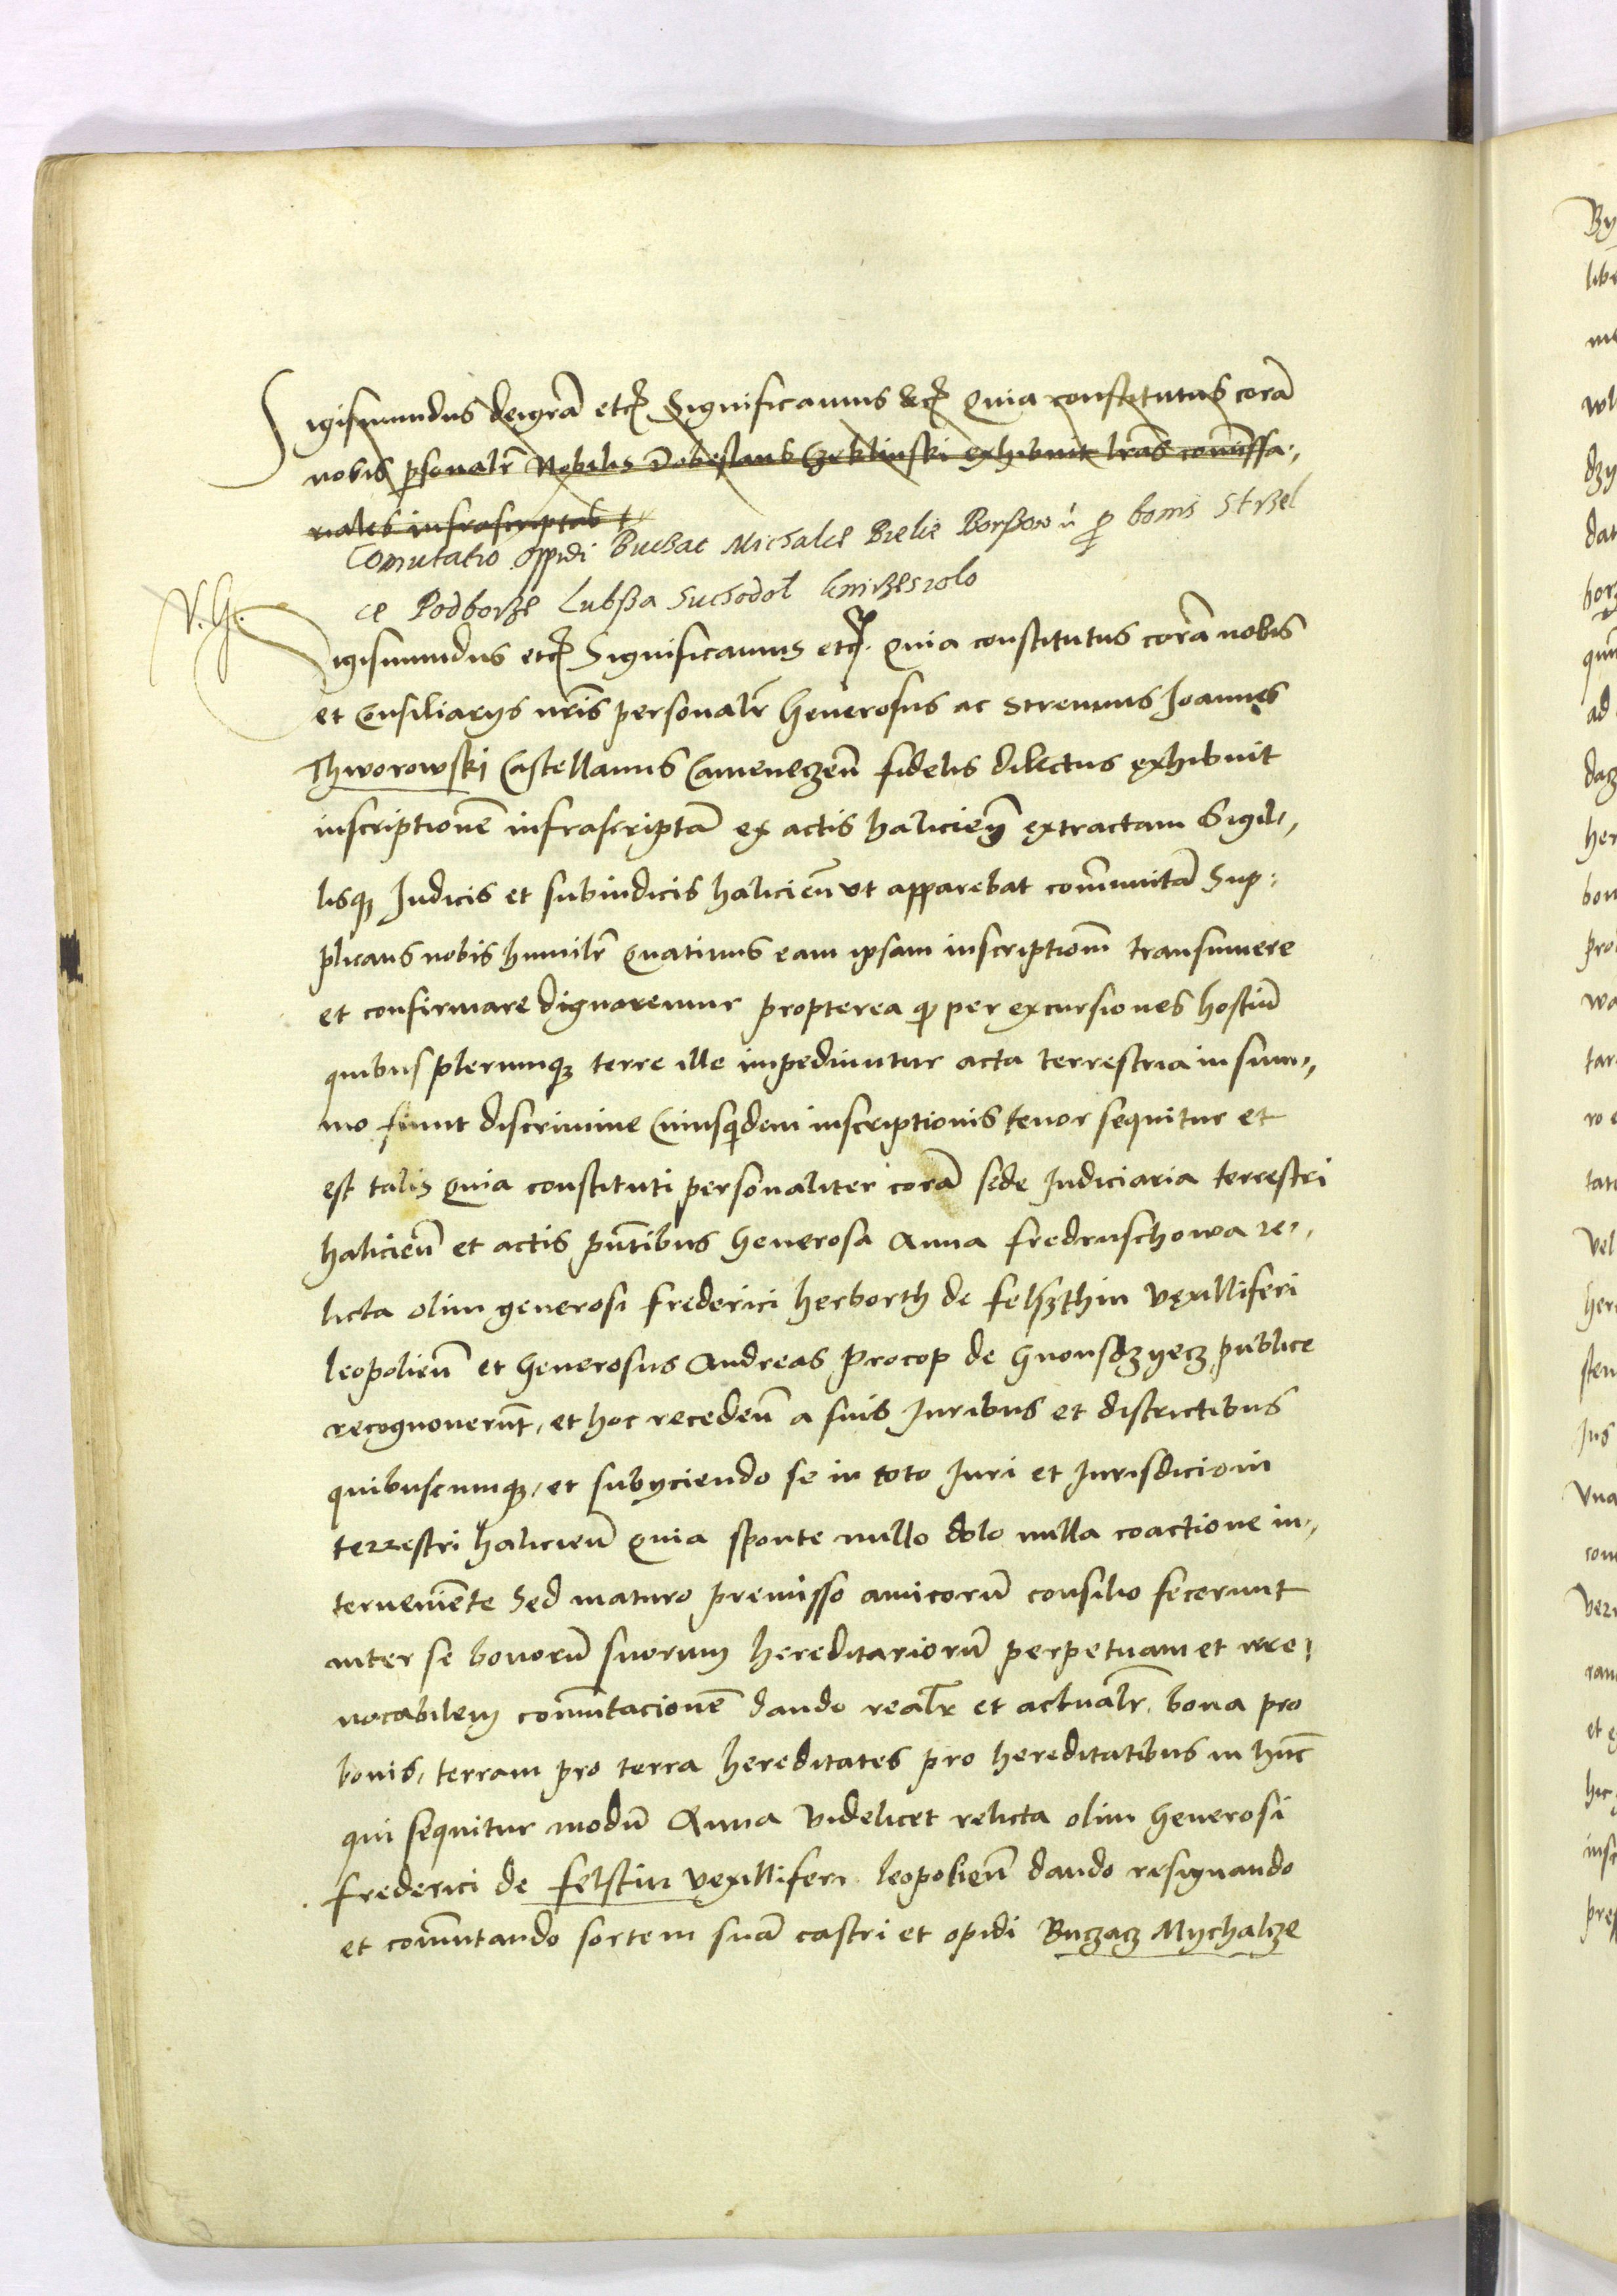 Sigismundus deigrã etc̃ Significamus &c̃ Quia constitutus corã
nobis psonalr̃ Nobilis Dobeslaus exhibuit lrãs com̃issa:
riales infrascriptas
Com̃utatio oppidi Buczac Michalcȝe Bielie Borßow p bonis Strzel
ce Podborże Lubßa Suchodol
V. G.
Sigismundus etc̃ Significamus etc̃. Quia constitutus corã nobis
et Consiliarijs nr̃is personalr̃ Generosus ac strenuus Joannes
Thworowskj Castellanus Cameneczeñ fidelis dilectus exhibuit
inscriptionẽ infrascriptã ex actis halicieñ extractam Sigil-
lisqȝ Judicis et subiudicis halicieñ vt apparebat com̃unitã Sup:
plicans nobis humilr̃ quatinus eam ipsam inscriptionẽ transumere
et confirmare dignaremur propterea qȝ per excursiones hostiũ
quibus plerumqȝ terre ille impediuntur acta terrestria in sum-
mo fiunt discrimine Cuiusquidem inscriptionis tenor sequitur et
est talis Quia constituti personaliter corã sede Judiciaria terrestri
halicieñ et actis pñtibus Generosa Anna fredruschowa re-
licta olim generosi frederici herborth de felszthin Vexilliferi
leopolieñ et Generosus Andreas Procop de publice
recognouerũt, et hoc recedeñ a suis Juribus et districtibus
quibuscumqȝ, et subijciendo se in toto Juri et Jurisdicioni
terrestri halicieñ Quia sponte nullo dolo nulla coactione in-
terueniẽte Sed maturo premisso amicorũ consilio fecerunt
inter se bonorũ suorum hereditariorũ perpetuam et irre-
uocabilem com̃utacionẽ dando realr̃ et actualr̃ bona pro
bonis, terram pro terra hereditates pro hereditatibus in hũc
qui sequitur modũ Anna videlicet relicta olim Generosi
frederici de felstin vexilliferi leopolieñ dando resignando
et com̃utando sortem suã castri et opidi Buczacz Mychalcze